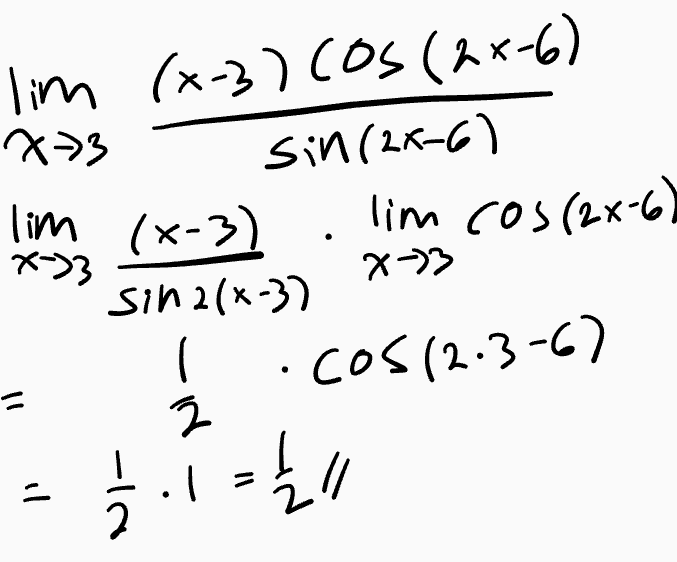 lim x→3 (x-3) cos(2x-6) / sin(2x-6)
lim x→3 (x-3) / sin 2(x-3) . lim x→3 cos(2x-6)
= 1/2 . cos(2.3-6)
= 1/2 . 1 = 1/2 //